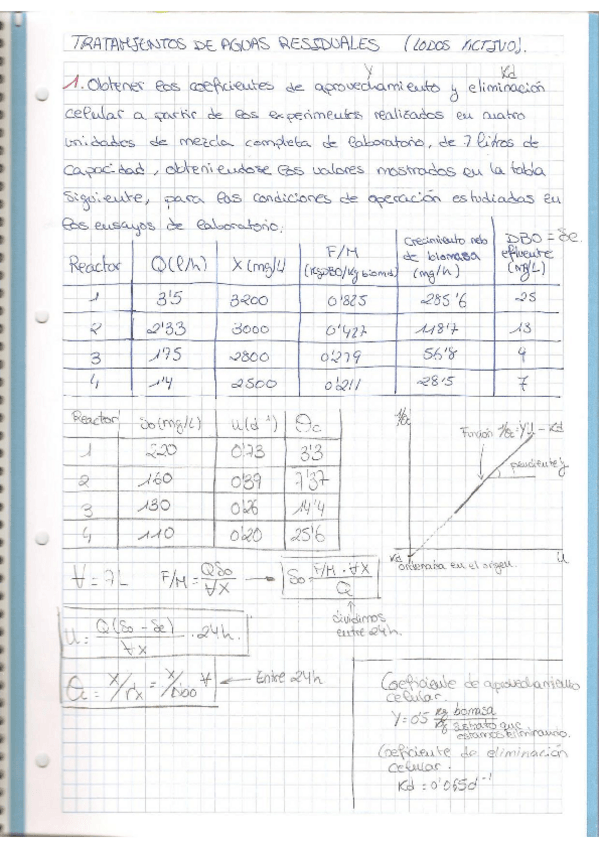 TRATAMIENTOS DE AGUAS RESIDUALES (LODOS ACTIVO).
Y Kd
1. Obtener los coeficientes de aprovechamiento y eliminación
celular a partir de los experimentos realizados en cuatro
unidades de mezcla completa de laboratorio, de 7 litros de
capacidad, obteniendose los valores mostrados en la tabla
siguiente, para las condiciones de operación estudiadas en
los ensayos de laboratorio.
Reactor Q(l/h) X(mg/L) F/M (KgDBO/Kg bioma) Crecimiento neto de biomasa (mg/h) DBO = Se efluente (mg/L)
1 3'5 3200 0'825 285'6 25
2 2'33 3000 0'427 118'7 13
3 1'75 2800 0'279 56'8 9
4 1'4 2500 0'211 28'5 7
Reactor So(mg/L) U(d⁻¹) θc
1 220 0'73 3'3
2 160 0'39 7'37
3 130 0'26 14'4
4 110 0'20 25'6
1/θc
Función 1/θc = Y·U - Kd
pendiente y
Kd
ordenada en el origen.
U
V = 7L F/M = QSo/VX → So = F/M · VX / Q
dividimos
entre 24h.
U = Q(So - Se)/VX · 24h.
θc = X/rx = X/1000 V ← Entre 24h
Coeficiente de aprovechamiento
celular.
Y = 0'5 kg biomasa / kg sustrato que
estamos eliminando.
Coeficiente de eliminación
celular.
Kd = 0'065d⁻¹